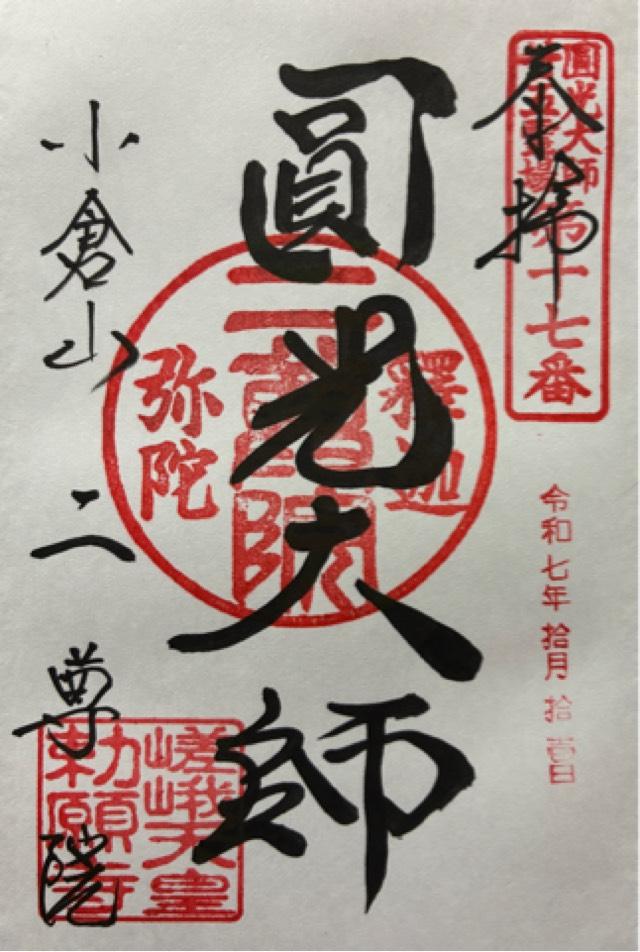 奉拝
圓光大師
廿五霊場第十七番
令和七年 拾月 拾壹日
圓光大師
釋迦
二尊院
弥陀
小倉山 二尊院
嵯峨天皇
勅願寺